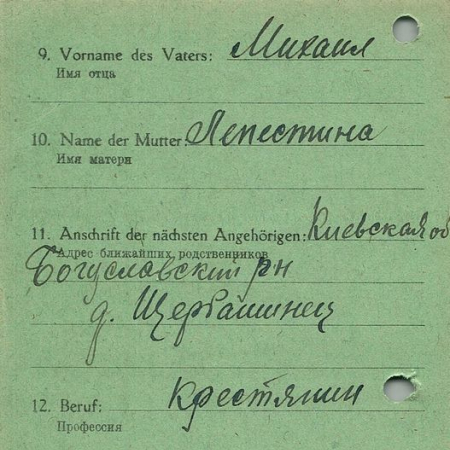 9. Vorname des Vaters: Михаил
Имя отца
10. Name der Mutter: Пепестина
Имя матери
11. Anschrift der nächsten Angehörigen: Киевская об
Адрес ближайших родственников
Богуславский рн
д. Щербашинец
12. Beruf: крестянин
Профессия